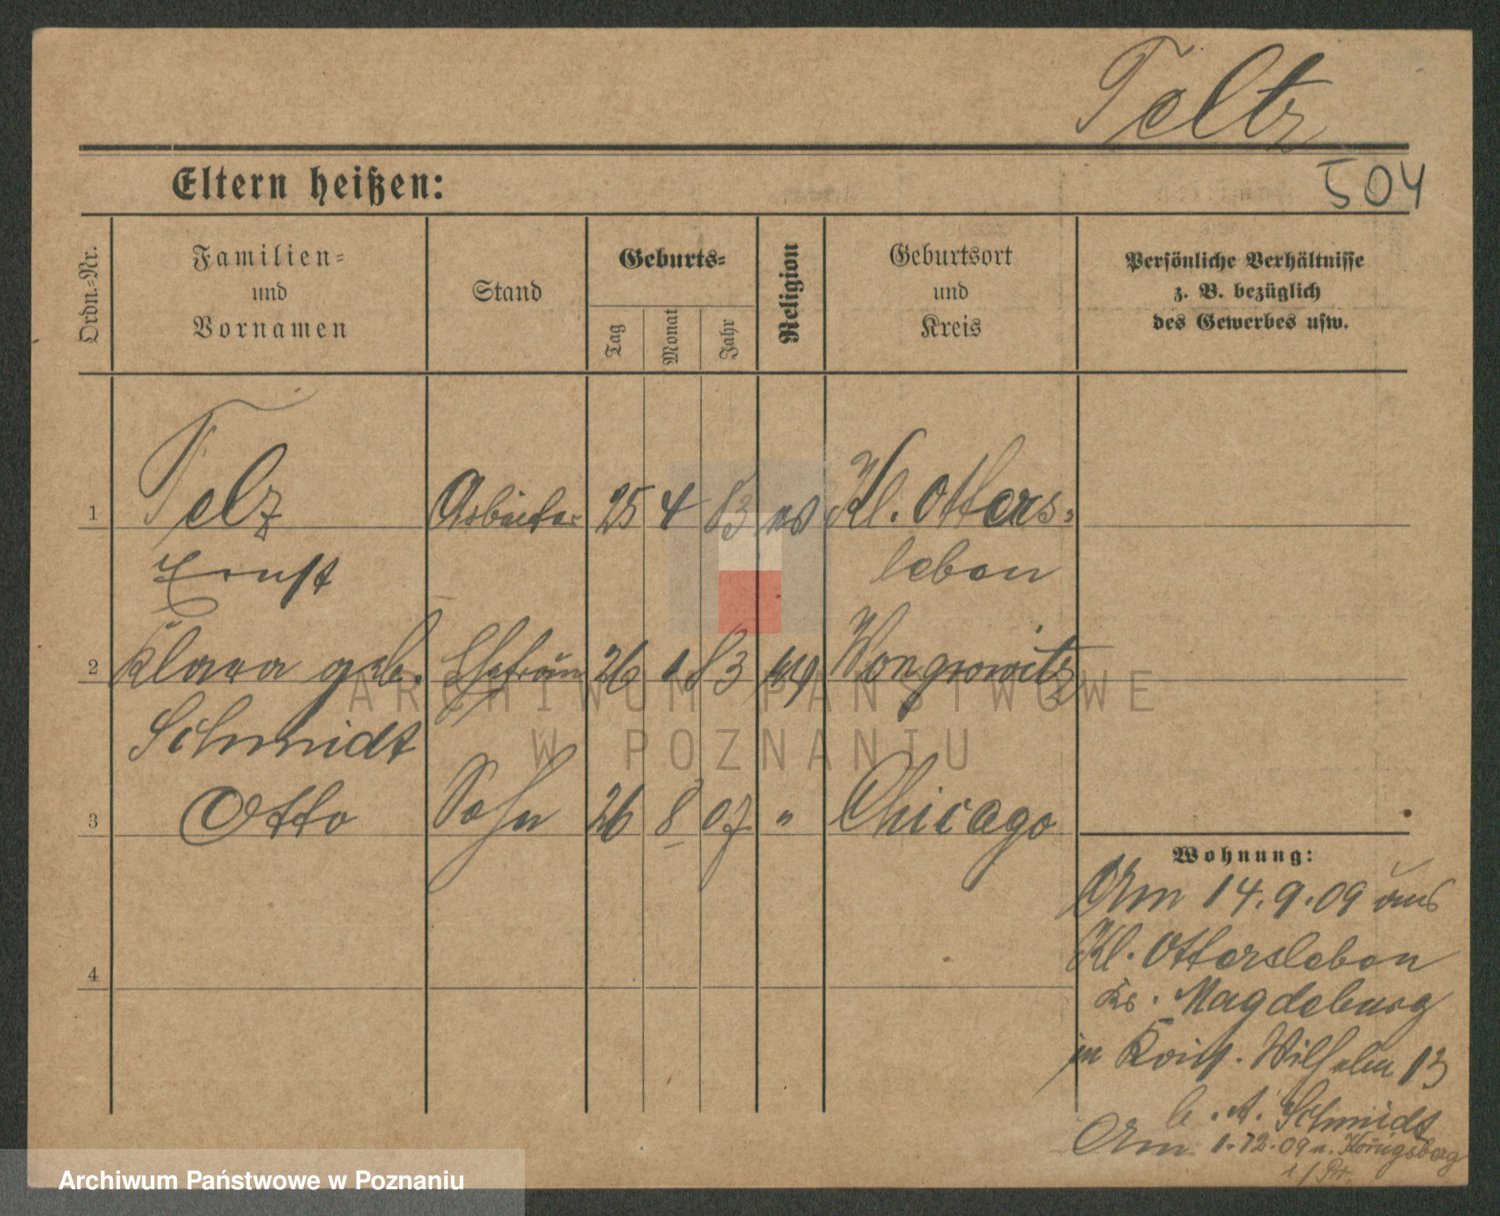 Teltz
504
Eltern heißen:
Ordn.-Nr.
Familien-
und
Vornamen
Stand
Geburts-
Tag
Monat
Jahr
Religion
Geburtsort
und
Kreis
Persönliche Verhältnisse
z. B. bezüglich
des Gewerbes usw.
1 Telz Arbeiter 25 4 83 Kl. Otters-
Ernst leben
2 Klara geb. Ehefrau 26 1 83 Wongrowitz
Schmidt
3 Otto Sohn 26 8 07 " Chicago
4
Wohnung:
Am 14.9.09 aus
Kl. Ottersleben
Kr. Magdeburg
in Wilhelm 13
b. A. Schmidt
Am 1.12.09 n. Königsberg
i/Pr.
ARCHIWUM PAŃSTWOWE
W POZNANIU
Archiwum Państwowe w Poznaniu